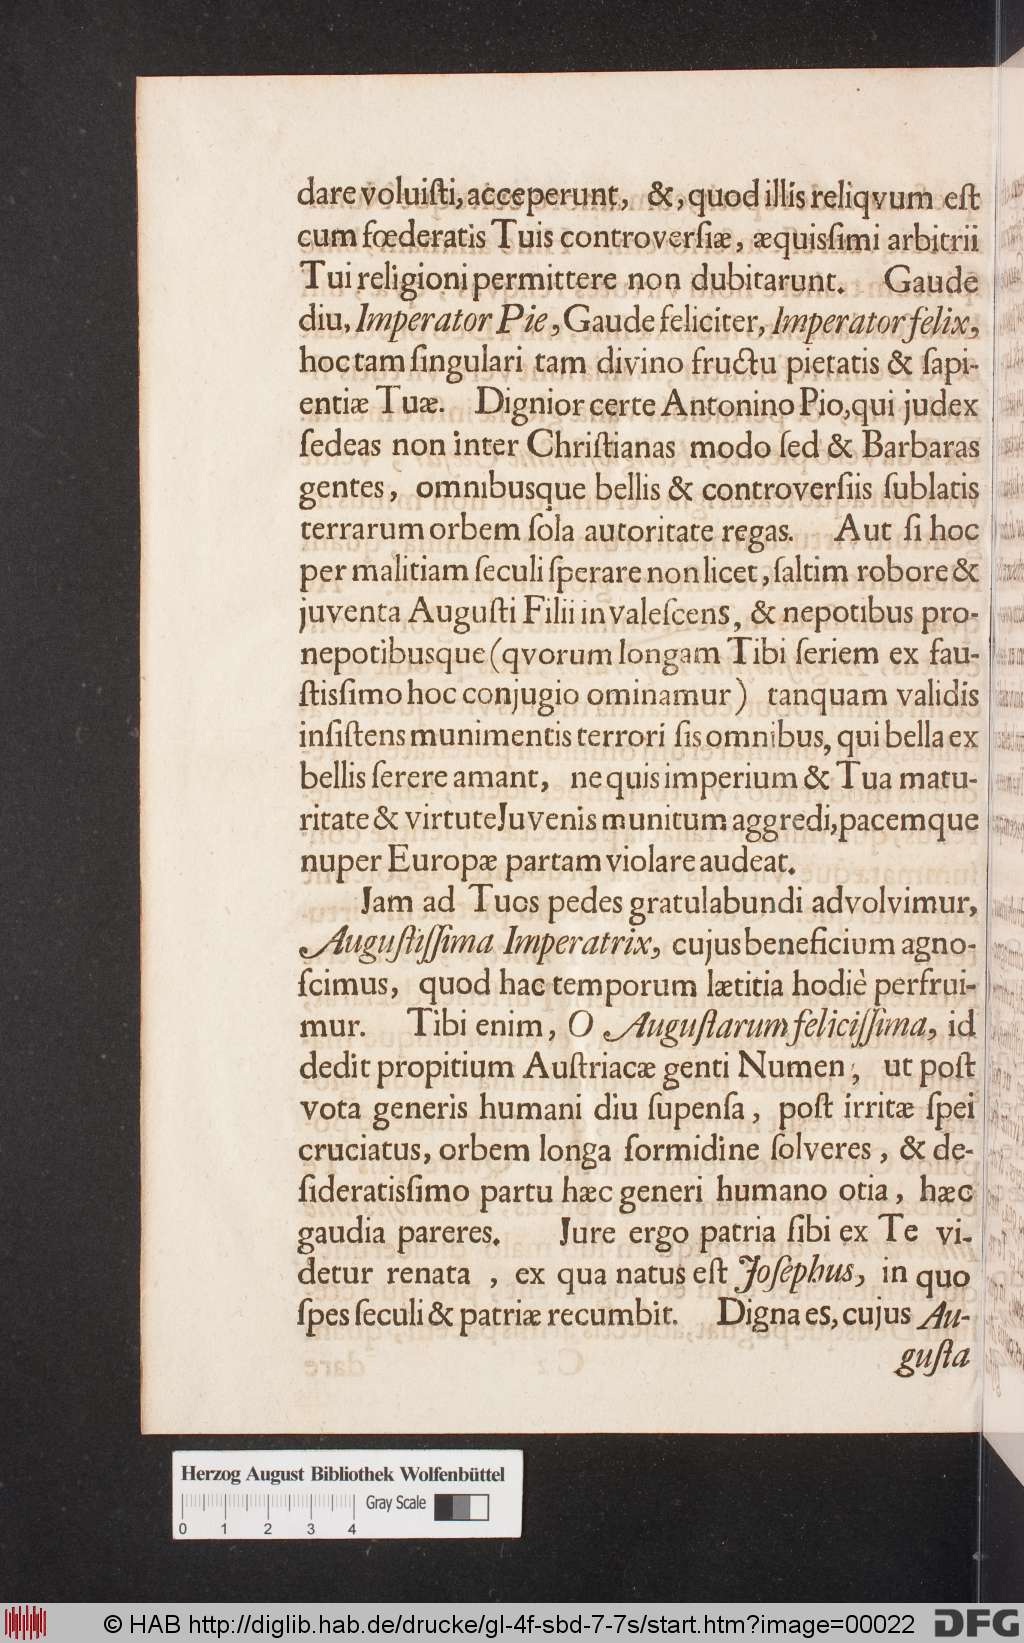 dare voluiſti, acceperunt, &, quod illis reliqvum eſt
cum fœderatis Tuis controverſiæ, æquisſimi arbitrii
Tui religioni permittere non dubitarunt. Gaude
diu, Imperator Pie, Gaude feliciter, Imperator felix,
hoc tam ſingulari tam divino fructu pietatis & ſapi-
entiæ Tuæ. Dignior certe Antonino Pio, qui judex
ſedeas non inter Chriſtianas modo ſed & Barbaras
gentes, omnibusque bellis & controverſiis ſublatis
terrarum orbem ſola autoritate regas. Aut ſi hoc
per malitiam ſeculi ſperare non licet, ſaltim robore &
juventa Auguſti Filii invaleſcens, & nepotibus pro-
nepotibusque (qvorum longam Tibi ſeriem ex fau-
ſtisſimo hoc conjugio ominamur) tanquam validis
inſiſtens munimentis terrori ſis omnibus, qui bella ex
bellis ſerere amant, ne quis imperium & Tua matu-
ritate & virtute Juvenis munitum aggredi, pacemque
nuper Europæ partam violare audeat.
Jam ad Tuos pedes gratulabundi advolvimur,
Auguſtiſſima Imperatrix, cujus beneficium agno-
ſcimus, quod hac temporum lætitia hodiè perfrui-
mur. Tibi enim, O Auguſtarum feliciſſima, id
dedit propitium Auſtriacæ genti Numen, ut poſt
vota generis humani diu ſupenſa, poſt irritæ ſpei
cruciatus, orbem longa formidine ſolveres, & de-
ſideratisſimo partu hæc generi humano otia, hæc
gaudia pareres. Jure ergo patria ſibi ex Te vi-
detur renata, ex qua natus eſt Joſephus, in quo
ſpes ſeculi & patriæ recumbit. Digna es, cujus Au-
guſta
Herzog August Bibliothek Wolfenbüttel
Gray Scale
0 1 2 3 4
© HAB http://diglib.hab.de/drucke/gl-4f-sbd-7-7s/start.htm?image=00022
DFG